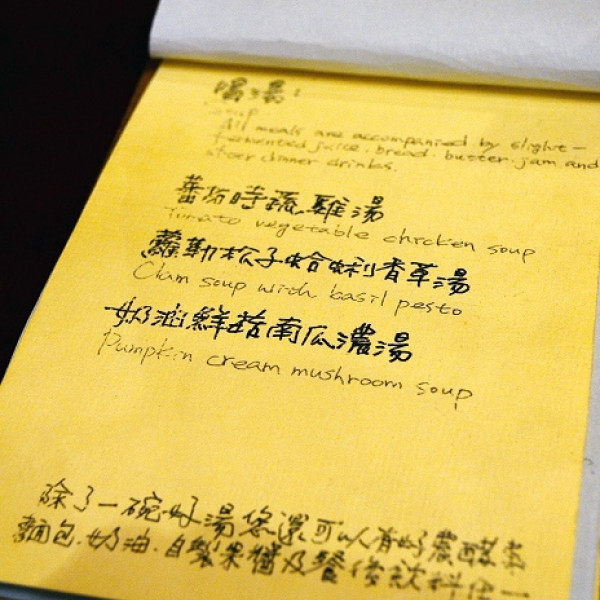 喝湯：
Soup
All meals are accompanied by slight-
fermented juice. bread. butter. jam and
after dinner drinks.
蕃茄時蔬雞湯
Tomato vegetable chicken soup
蘿勒松子蛤蜊香草湯
Clam soup with basil pesto
奶油鮮菇南瓜濃湯
Pumpkin cream mushroom soup
除了一碗好湯您還可以有好農醋
麵包.奶油.自製果醬及餐後飲料任一